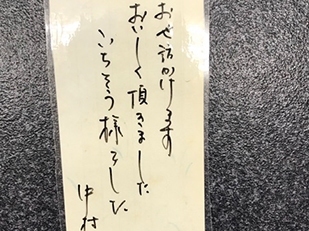 おせ話かけます
おいしく頂きました
ごちそう様でした
中村